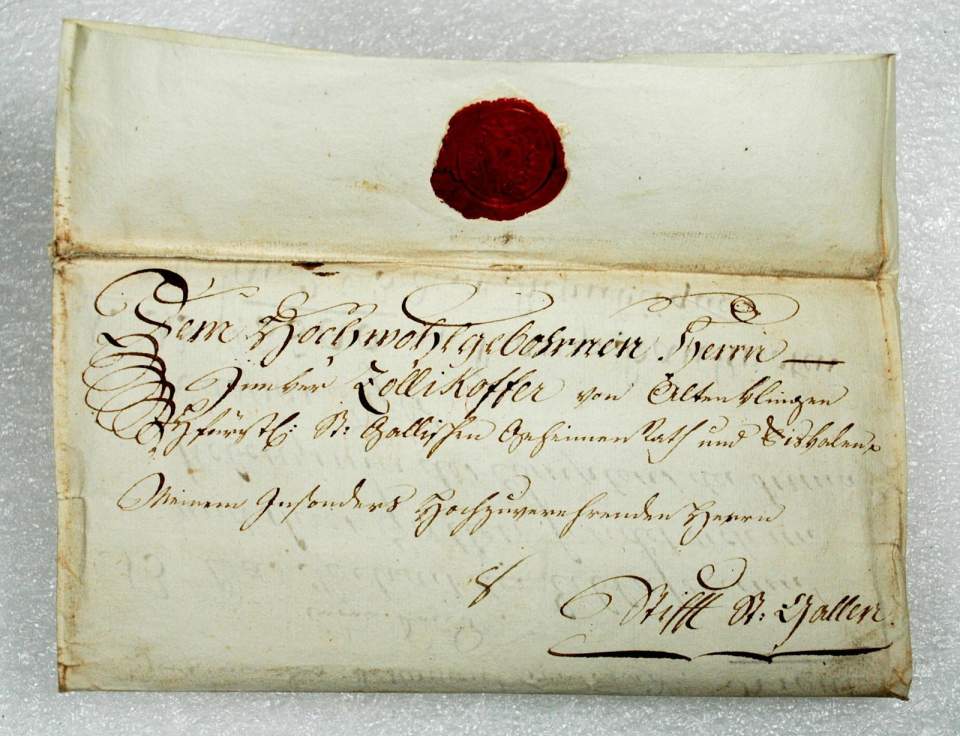 Dem Hochwohlgebohrnen Herrn
Junker Zollikoffer von Altenklingen
Hfürstl: St: Gallischen Geheimen Rath und
Meinem Insonders Hochzuverehrenden Herrn
Stifft St: Gallen.